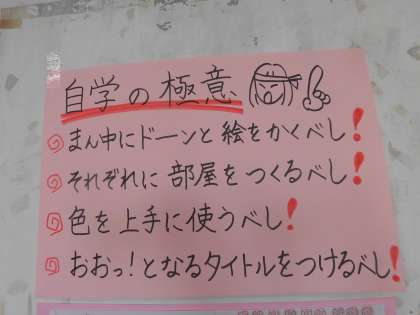 自学の極意
まん中にドーンと絵をかくべし!
それぞれに部屋をつくるべし!
色を上手に使うべし!
おおっ!となるタイトルをつけるべし!